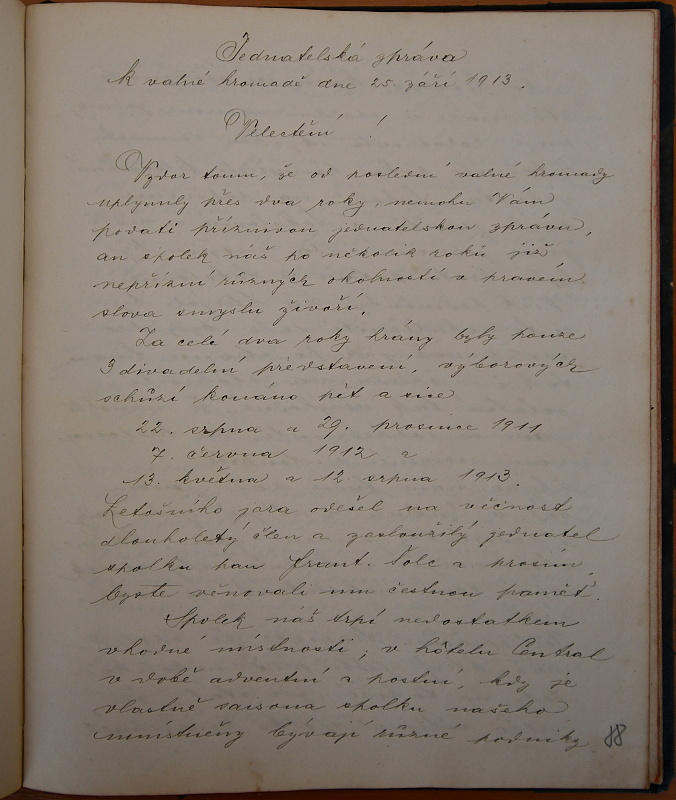 Jednatelská zpráva
k valné hromadě dne 25. září 1913.
Velectění !
Vzdor tomu, že od poslední valné hromady
uplynuly přes dva roky, nemohu Vám
podati příznivou jednatelskou zprávu,
an spolek náš po několik roků již
nepřízní různých okolností v pravém
slova smyslu živoří.
Za celé dva roky hrány byly pouze
3 divadelní představení, výborových
schůzí konáno pět a sice
22. srpna a 29. prosince 1911
7. června 1912 a
13. května a 12. srpna 1913.
Letošního jara odešel na věčnost
dlouholetý člen a zasloužilý jednatel
spolku pan Frant. Nolc a prosím,
byste věnovali mu čestnou paměť.
Spolek náš trpí nedostatkem
vhodné místnosti; v hôtelu Central
v době adventní a postní, kdy je
vlastně saisona spolku našeho
umístněny bývají různé podniky
88